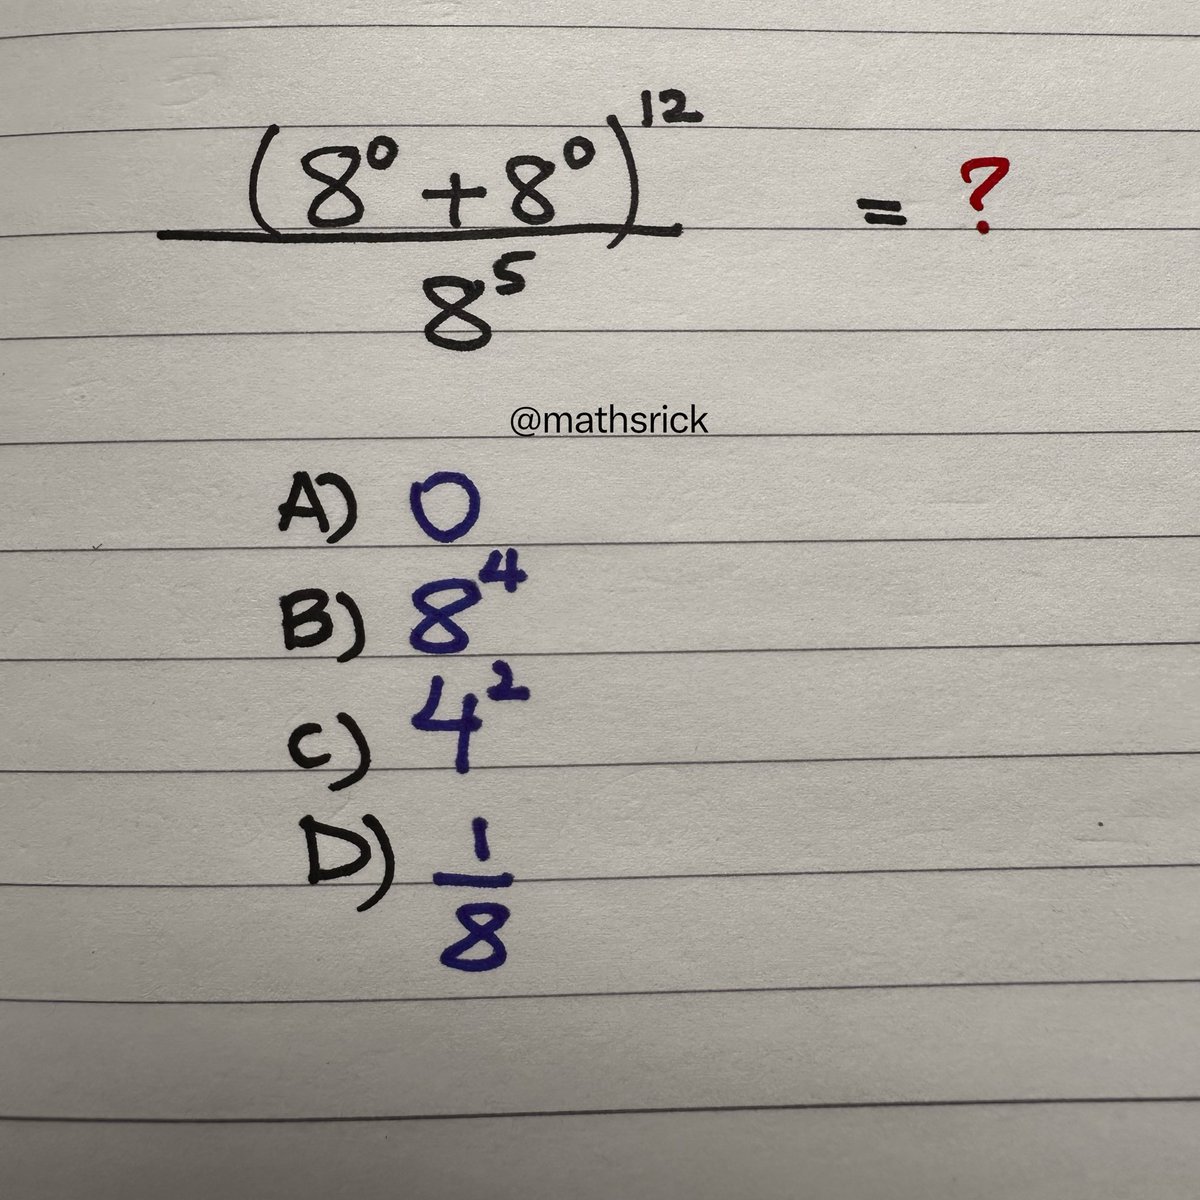 (8⁰ + 8⁰)¹² / 8⁵ = ?
@mathsrick
A) 0
B) 8⁴
C) 4²
D) 1/8